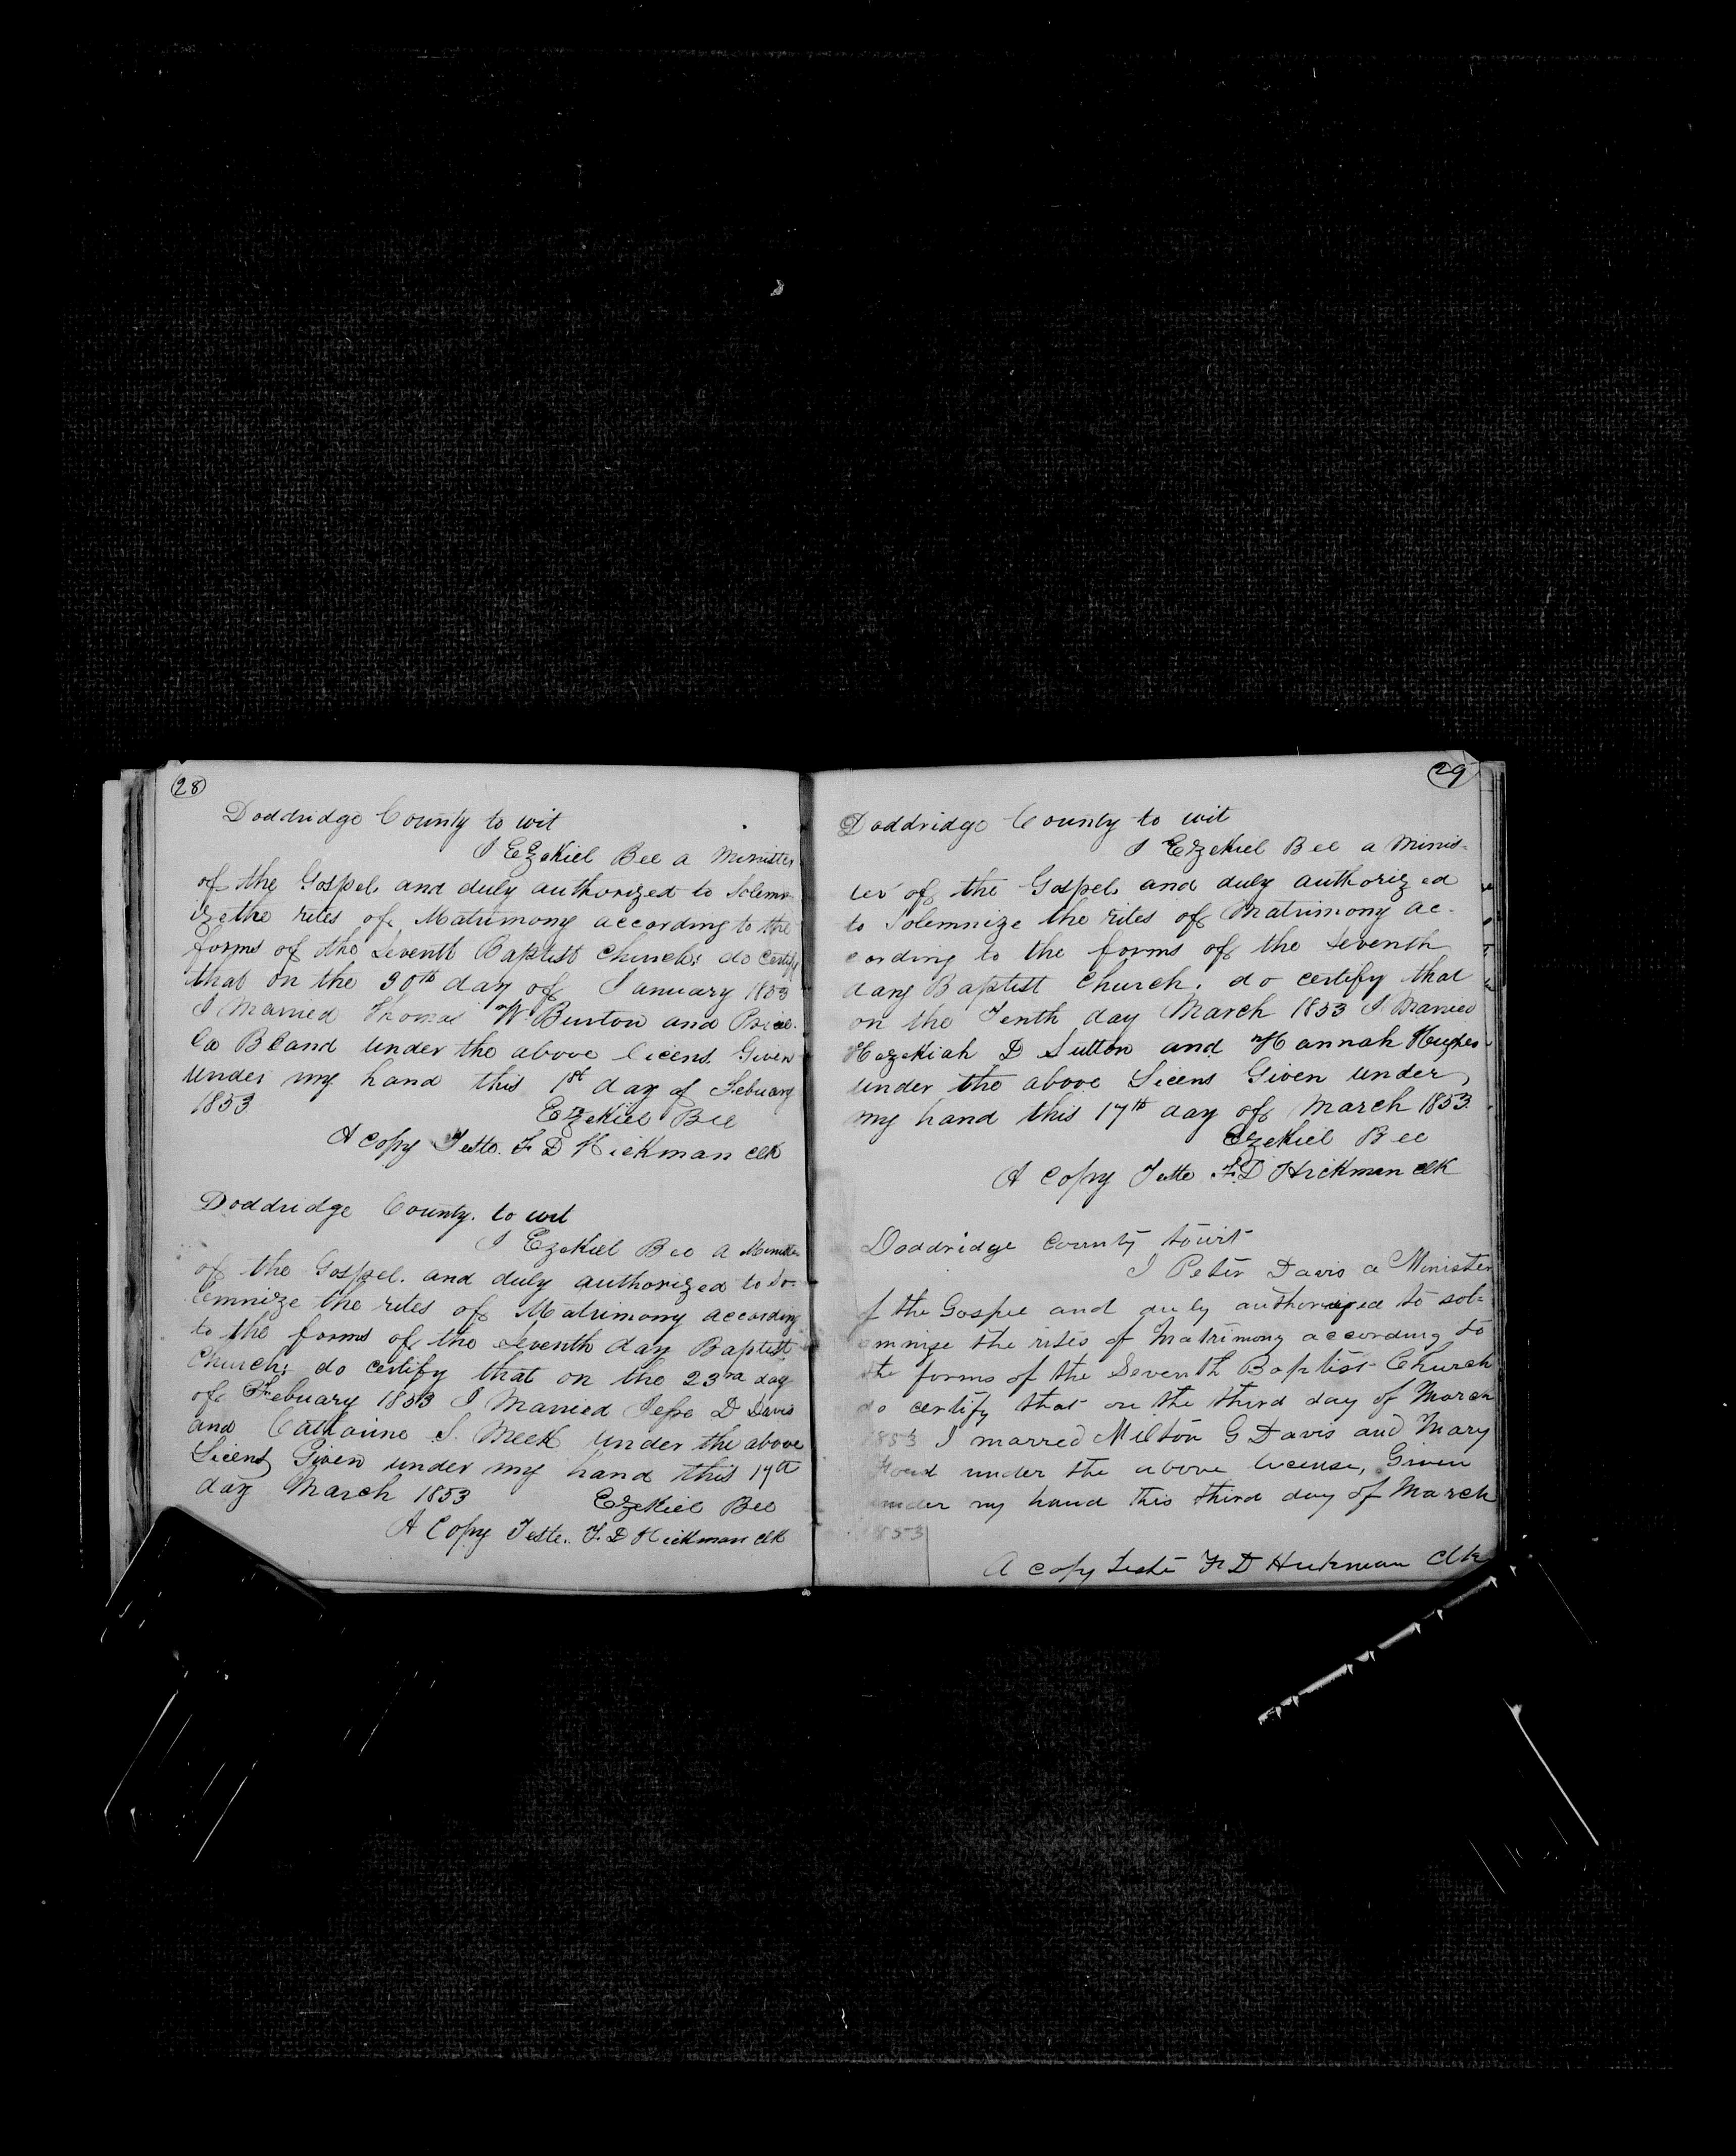 28
Doddridge County to wit
I Ezekiel Bee a Minister
of the Gospel, and duly authorized to Solemn
ize the rites of Matrimony according to the
forms of the Seventh Baptist Church; do Certify
that on the 30th day of January 1853
I Married Thomas W. Burton and Pricil-
la Bland under the above licens Given
under my hand this 1st day of Febuary
1853 Ezekiel Bee
A Copy Teste. F D Hickman Clk
Doddridge County. to wit
I Ezekiel Bee a Minister
of the Gospel. and duly authorized to So-
lemnize the rites of Matrimony according
to the forms of the Seventh day Baptist
Church; do certify that on the 23rd day
of Febuary 1853 I Married Jesse D Davis
and Catharine S. Meek under the above
Licens Given under my hand this 17th
day March 1853 Ezekiel Bee
A Copy Teste. F. D Hickman Clk
29
Doddridge County to wit
I Ezekiel Bee a Minis-
ter of the Gospel, and duly authorized
to Solemnize the rites of Matrimony ac-
cording to the forms of the Seventh
day Baptist Church. do certify that
on the Tenth day March 1853 I Married
Hezekiah D Sutton and Hannah Hughes
under the above Licens Given under
my hand this 17th day of March 1853.
Ezekiel Bee
A Copy Teste F. D Hickman Clk
Doddridge County to wit
I Peter Davis a Minister
f the Gospel and duly authorized to sol-
emnize the rites of Matrimony according to
the forms of the Seventh Baptist Church
do certify that on the third day of March
1853 I marred Milton G Davis and Mary
under the above license, Given
under my hand this third day of March
1853
A copy teste F D Hickman Clk